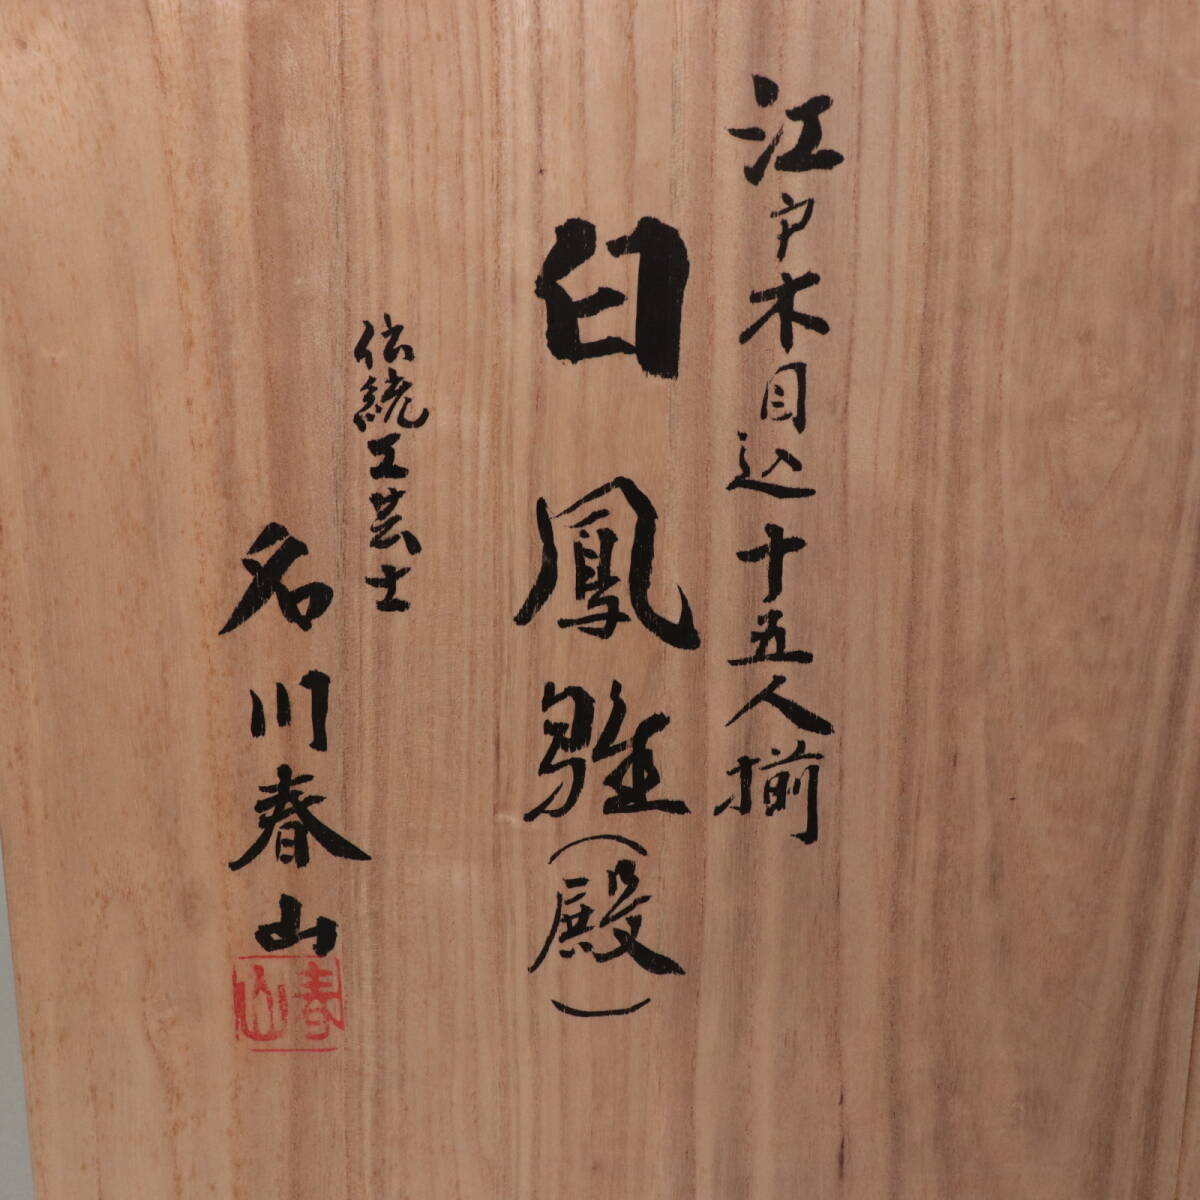 江戸木目込十五人揃
白鳳雛(殿)
伝統工芸士
名川春山
春山